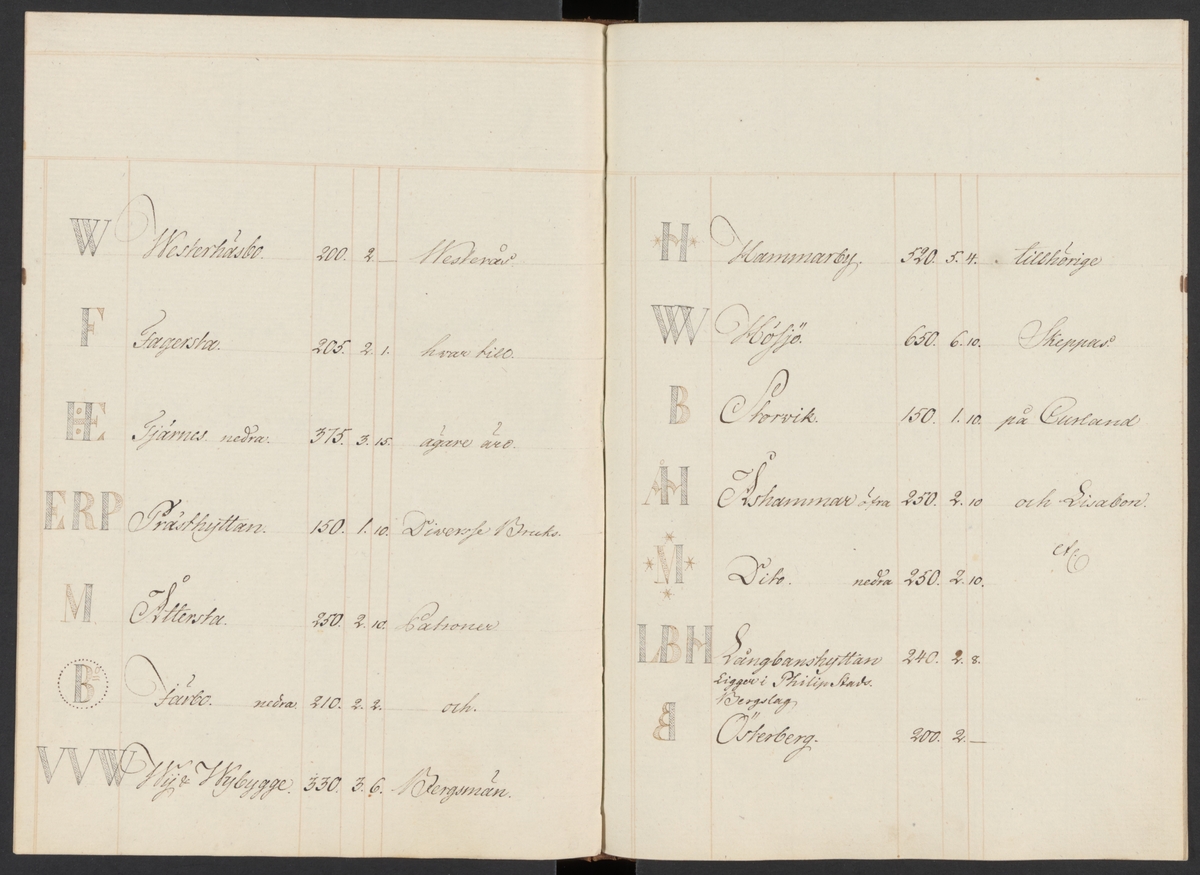 W Westerhåsbo. 200. 2 — Westerås
F Fagersta. 205. 2. 1. hvartill.
HE Tjärnes nedra. 375. 3. 15. ägare äro.
ERP Prästhyttan. 150. 1. 10. Diverse Bruks.
M Åttersta. 250. 2. 10. Patroner
B Järbo. nedra. 210. 2. 2. och.
VVW Wij & Wybygge. 330. 3. 6. Bergsmän.
H Hammarby. 520. 5. 4. tillhörige
VW Höfjö. 650. 6. 10. Skeppas
B Storvik. 150. 1. 10. på Curland
ÅH Åshammar öfra 250. 2. 10 och Lisabon.
M Dito. nedra 250. 2. 10. etc
LBH Långbanshyttan 240. 2. 8.
Ligger i Philip Stads.
Bergslag
B Österberg. 200. 2. —